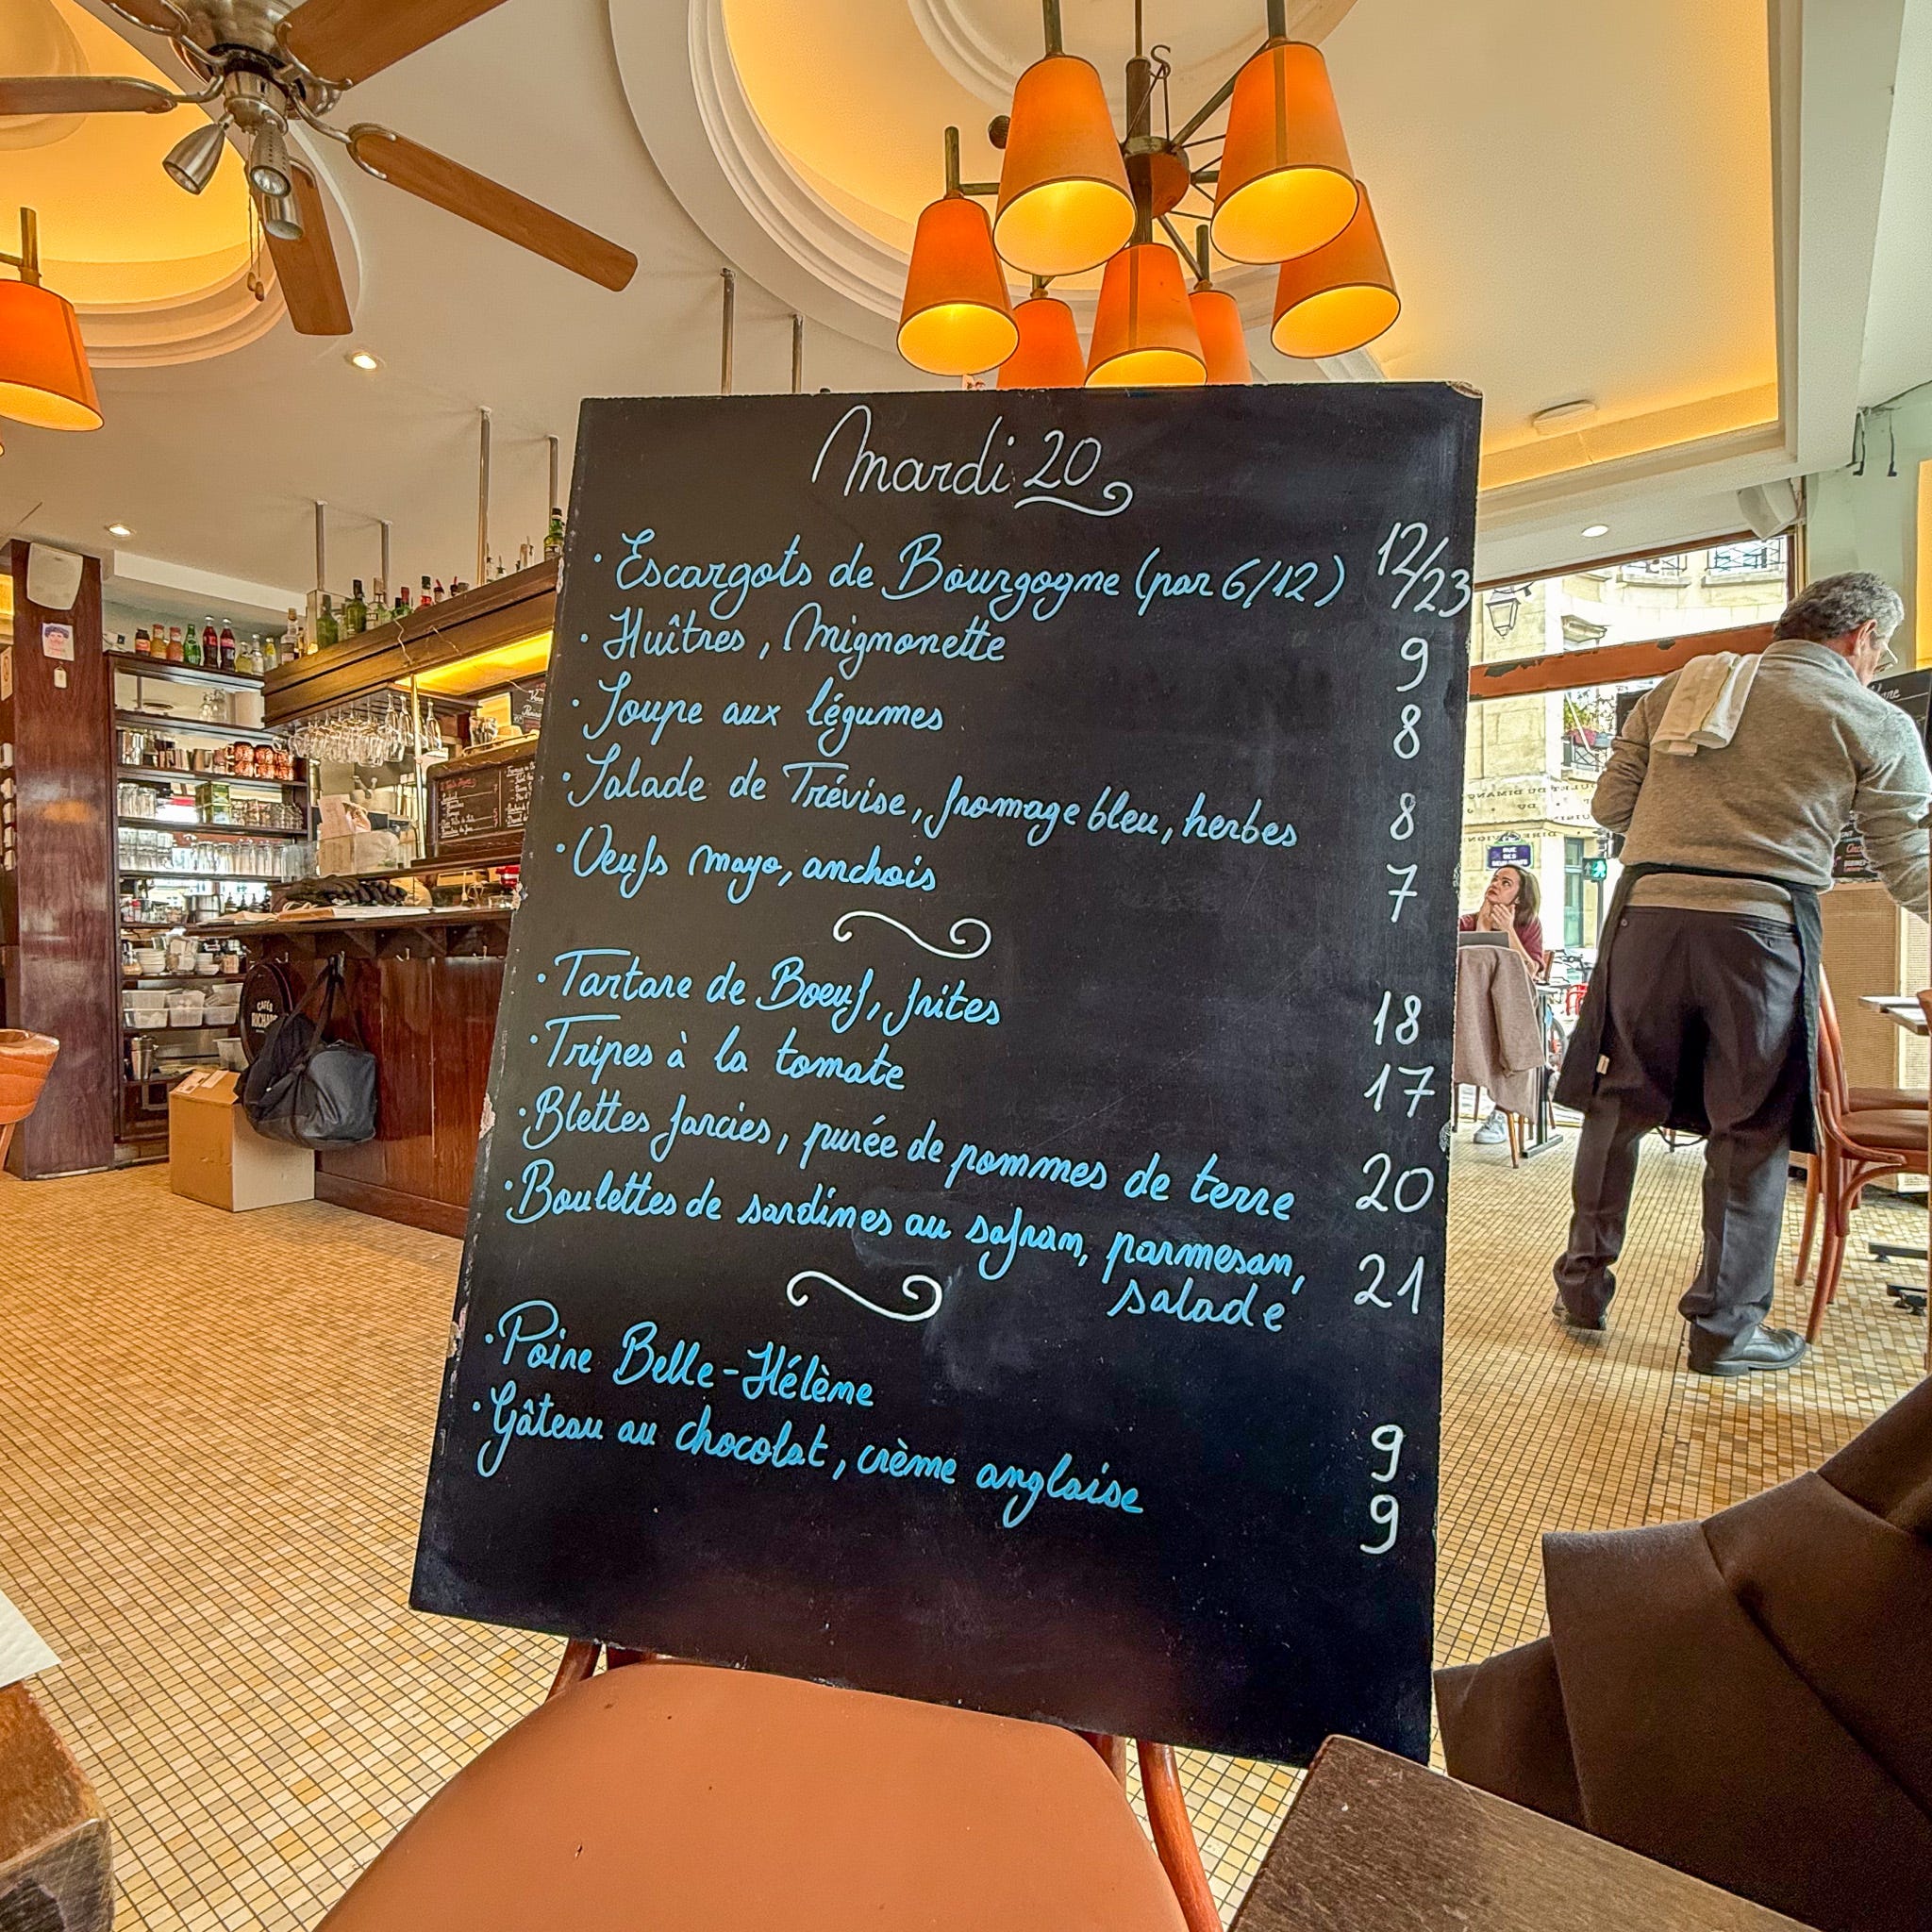 Mardi 20
· Escargots de Bourgogne (par 6/12) 12/23
· Huîtres, Mignonette 9
· Soupe aux légumes 8
· Salade de Trévise, fromage bleu, herbes 8
· Oeufs mayo, anchois 7
· Tartare de Boeuf, frites 18
· Tripes à la tomate 17
· Blettes farcies, purée de pommes de terre 20
· Boulettes de sardines au safran, parmesan, 21
salade
· Poire Belle-Hélène 9
· Gâteau au chocolat, crème anglaise 9
CAFÉS
RICHARD
RUE
DES